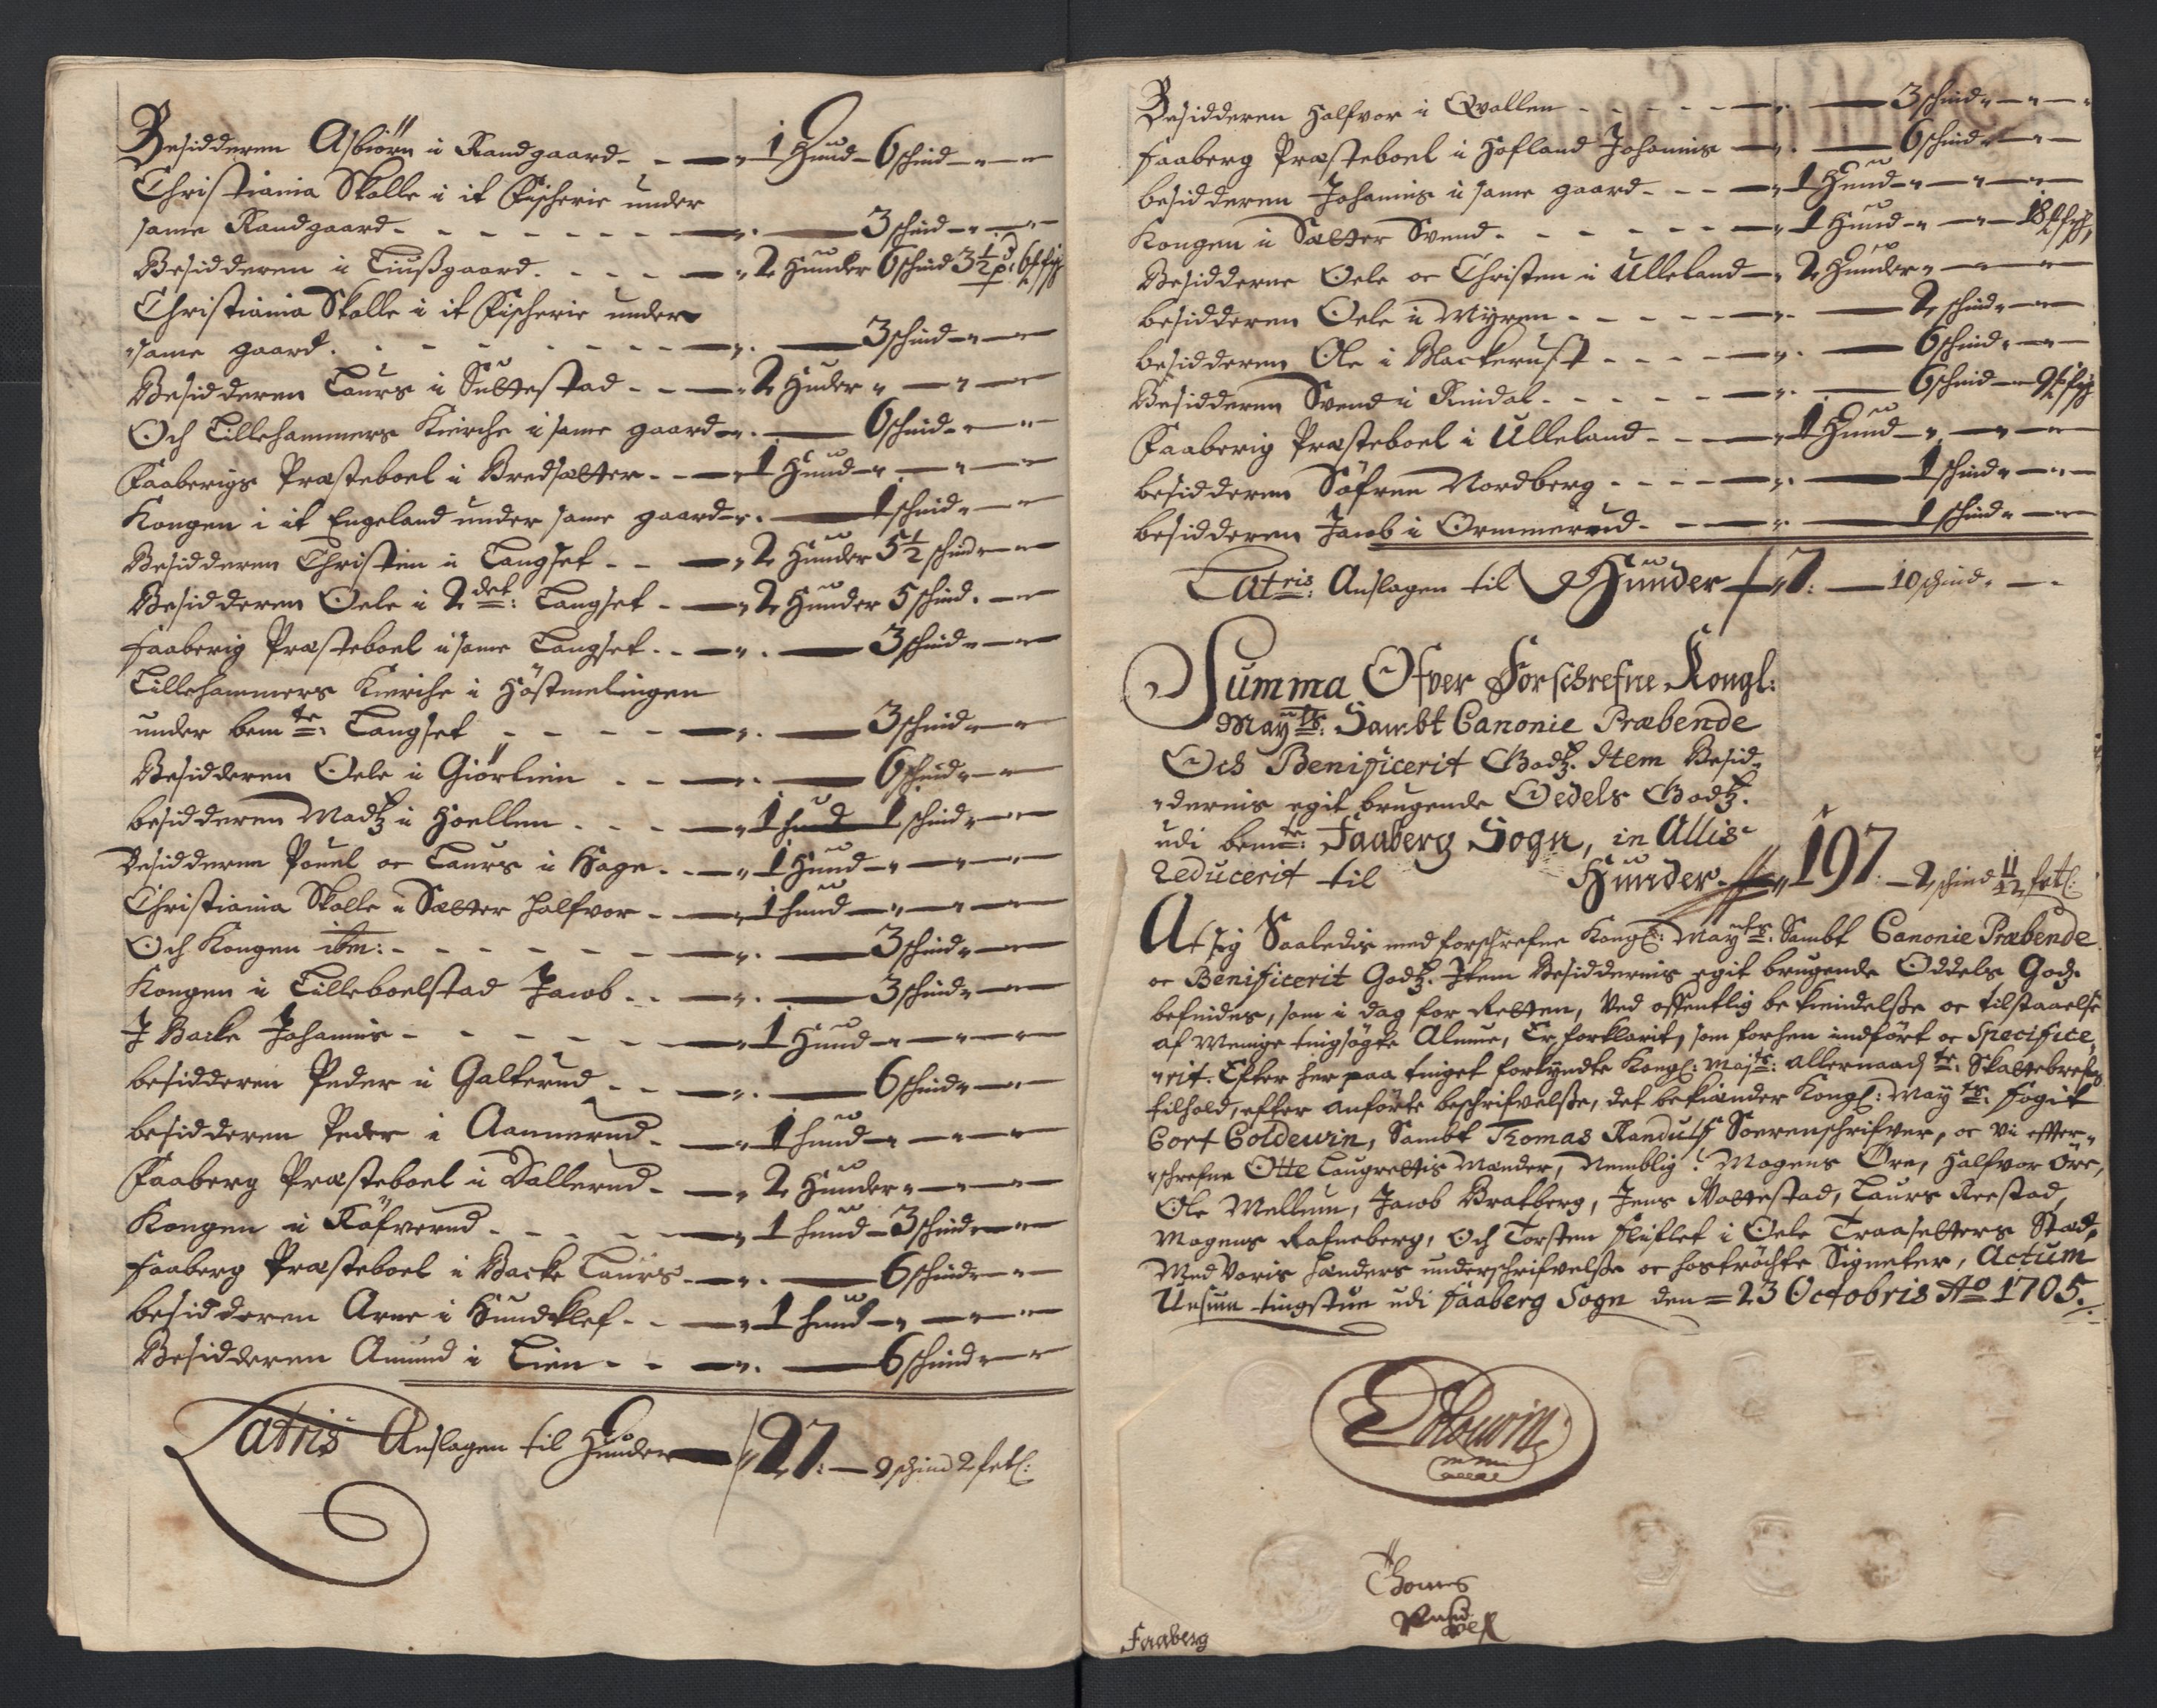 Besidderen Asbiörn i Randgaard - - 1 Huud - 6 schind
Christiania Skolle i it Fischerie under
same Randgaard - - - 3 schind
Besidderen i Liußgaard - - - 2 Huuder 6 schind 3 1/2 p:
Christiania Skolle i it Fischerie under
same gaard - - - 3 schind
Besidderen Laurs i Suttestad - - 2 Huder
Och Lillehammers Kierche i same gaard 6 schind
Faaberigs Præsteboel i Bredsætter - - 1 Huud
Kongen i it Engeland under same gaard 1 schind
Besidderen Christen i Langset - - 2 Huuder 5 1/2 schind
Besidderen Oele i 2 det: Langset - 2 Huuder 5 schind
Faaberig Præsteboel i same Langset - - 3 schind
Lillehammers Kierche i Höstmelingen
under bem te: Langset - - - 3 schind
Besidderen Oele i Giörlien - - 6 schind
besidderen Madtz i Hoellen - - - 1 hud 1 schind
Besidderen Pouel oc Laurs i Hage - - 1 Huud
Christiania Skolle i Sætter Halfvor - - 1 huud
Och Kongen ibm: - - - 3 schind
Kongen i Lilleboelstad Jacob - - 3 schind
I Backe Johannis - - - 1 Huud
besidderen Peder i Galterud - - 6 schind
besidderen Peder i Aannerud - 1 huud
Faaberg Præsteboel i Dallerud - 2 Huuder
Kongen i Röfverud - - - 1 huud - 3 schind
Faaberg Præsteboel i Backe Laurs - 6 schind
besidderen Arne i Hundklef - - 1 huud
Besidderen Amund i Lien - - 6 schind
Latris Anslagen til Huuder 27: - 9 schind 2 fetl:
Besidderen Halfvor i Qvollen - - - 3 schind
Faaberg Præsteboel i Hofland Johannis 6 schind
besidderen Johannis i same gaard - - 1 Huud
Kongen i Sætter Svend - - - 1 Huud 18
Besidderne Oele oc Christen i Ulleland 2 Huuder
besidderen Oele i Myren - - - 2 schind
besidderen Ole i Mackerust - - - 6 schind
Besidderen Svend i Rindal - - - 6 schind 9
Faaberig Præsteboel i Ulleland - - 1 Huud
besidderen Söfren Nordberg - - - 1 schind
besidderen Jacob i Ormmerud - - 1 schind
Latris: Anslagen til Huuder 7: 10 schind
Summa Ofver Forschrefne Kongl:
May ts: Sambt Canonie Præbende
Och Benificerit Godtz. Item Besid-
dernis egit brugende Oedels Godtz.
udi bem te: Faaberg Sogn, in Allis
Reducerit til Huuder 197 - 2 schind 11/12 fetl:
At sig Saaledis med forschrefne Kongl: May ts: Sambt Canonie Præbende
oc Benificerit Godtz. Item Besiddernis egit brugende Oddels Godz
befindes, som i dag for Retten, Ved offentlig bekiendelße oc tilstaaelse
af Menige tingsögte Almue, Er forklarit, som forhen indfört oc Specifice-
rit. Efter her paa tinget forkyndte Kongl: Maj ts: allernaad te: Skattebrefs
tilhold, efter anförte beschrifvelße, det bekiænder Kongl: May ts: fogit
Cort Coldewin, Sambt Thomas Randulf Sorenschrifver, oc vi effter-
schrefne Otte Laugrettis Mænder, Nemblig: Mogens Öre, Halfvor öre,
Ole Mellum, Jacob Bratberg, Jens Nottestad, Laurs Reestad,
Mogens Rafneberg, Och Torsten Flistet i Oele Traasetters Stad,
Med Voris Hænders underschrifvelße oc hoströchte Signeter, Actum
tingstue udi Faaberg Sogn den 23 Octobris Ao 1705.
Thomas
Faaberg